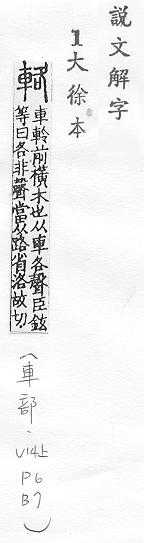 說文解字
1大徐本
輅
車軨前橫木也从車各聲臣鉉
等曰各非聲當从路省洛故切
(車部、V14上 P6 B7)